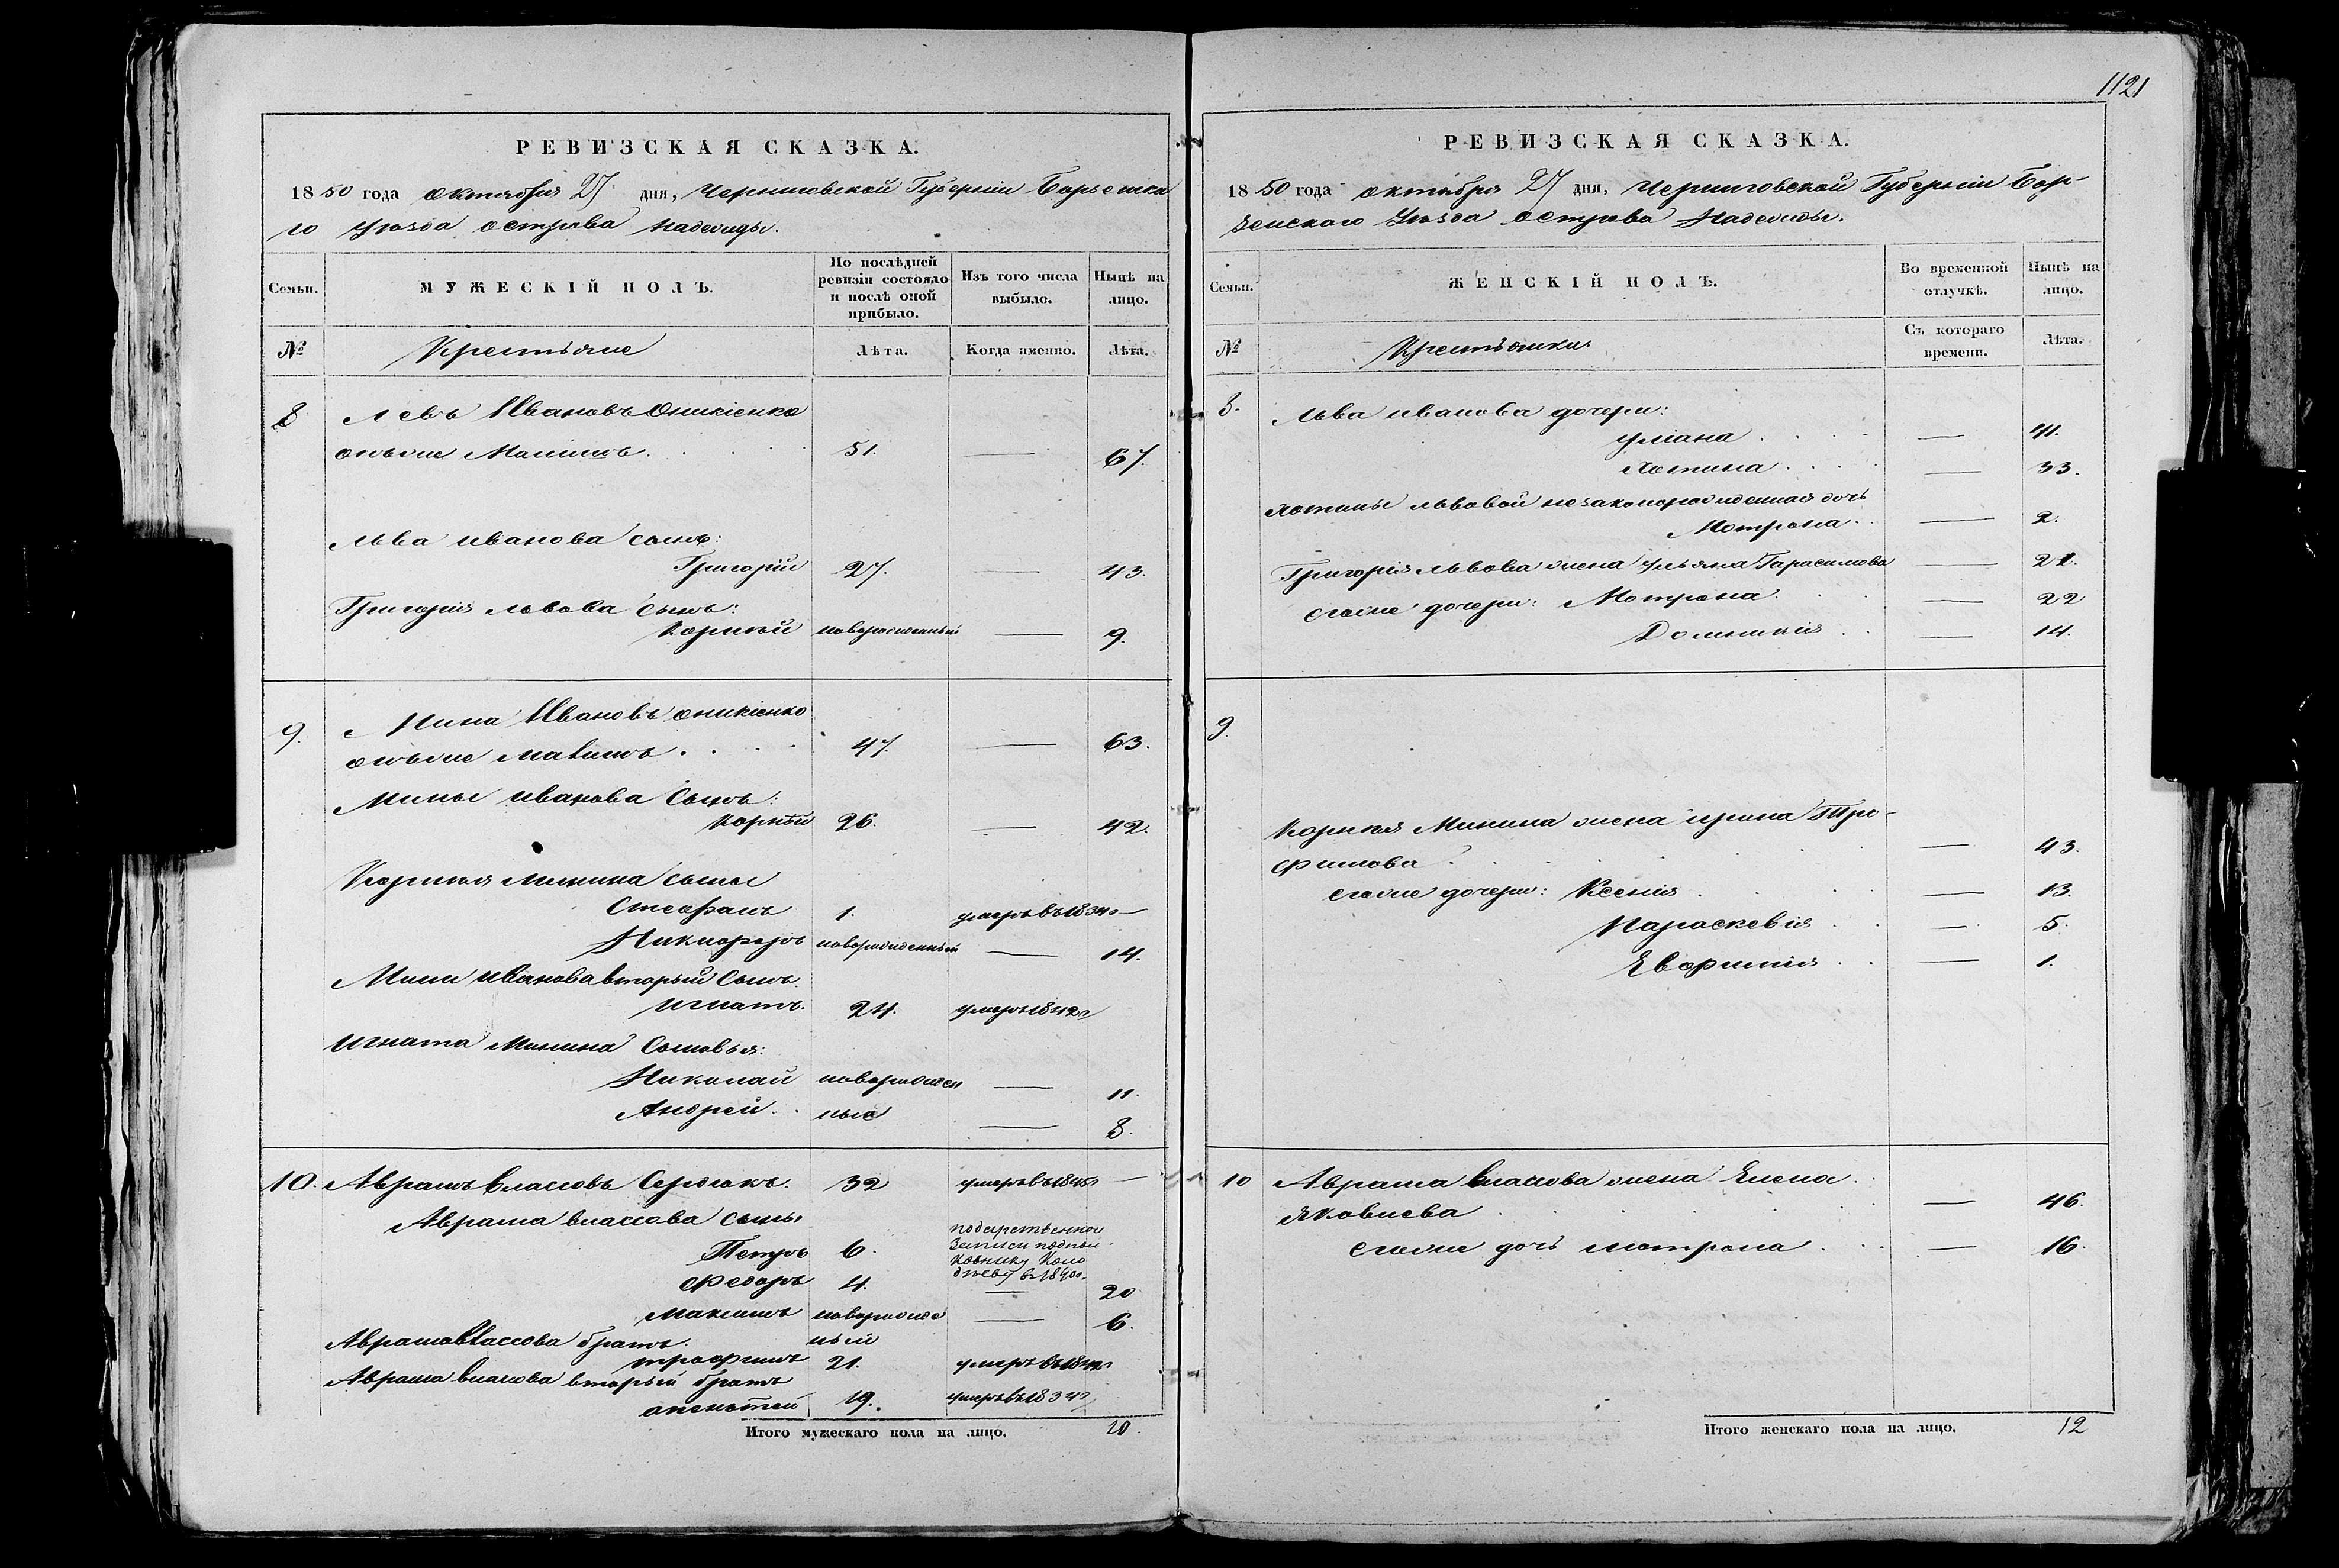 РЕВИЗСКАЯ СКАЗКА.
1850 года октября 27 дня, Черниговской Губерніи Борзенска
го уѣзда острова Надежды.
Семьи.
МУЖЕСКІЙ ПОЛЪ.
По послѣдней
ревизіи состояло
и послѣ оной
прибыло.
Изъ того числа
выбыло.
Нынѣ на
лицо.
№
Крестьяне
Лѣта.
Когда именно.
Лѣта.
8 Левъ Ивановъ Оникіенко
онъже 51. — 67.
Льва иванова сынъ:
Григорій 27. — 43.
Григорія львова сынъ:
Корнѣй новорожденный — 9.
9. Мина Ивановъ оникіенко
онъже 47. — 63.
Мины иванова сынъ:
Корнѣй 26. — 42.
Корнѣя Минина сыны
Стефанъ 1. умеръ въ 1834 —
Никифоръ новорожденный — 14.
Мины Иванова вторый сынъ
игнатъ. 24. умеръ 1842
Игната Минина сыновья:
Николай новорожден — 11.
Андрей ные — 8.
10. Аврамъ власовъ Сердюкъ. 32 умеръ въ 1845 —
Аврама власова сыны
Петръ 6. по дарственной
записи полпол
ковнику Коло
дѣеву в 1840
Федоръ 4. — 20
Максимъ новорожде — 6.
ный
Аврама власова братъ.
трофимъ 21. умеръ въ
Аврама власова вторый братъ
19. умеръ въ 1834
Итого мужескаго пола на лицо. 10.
1121
РЕВИЗСКАЯ СКАЗКА.
1850 года октября 27 дня, Черниговской Губерніи Бор-
зенскаго Уѣзда острова Надежды.
Семьи.
ЖЕНСКІЙ ПОЛЪ.
Во временной
отлучкѣ.
Нынѣ на
лицо.
№
Крестьянки
Съ котораго
времени.
Лѣта.
8. Льва иванова дочери:
уліана — 41.
Хотина — 33.
Хотины львовой незаконорожденная дочь
Мотрона — 2.
Григорія львова жена ульяна Гарасимова —
егоже дочери: Мотрона — 22
Домникія — 14.
9.
Корнѣя Минина жена ирина Тро-
фимова — 43.
егоже дочери: Ксенія — 13.
Параскевія — 5.
Евфимія — 1.
10 Аврама власова жена Елена
яковлева — 46.
егоже дочь мотрона — 16.
Итого женскаго пола на лицо. 12